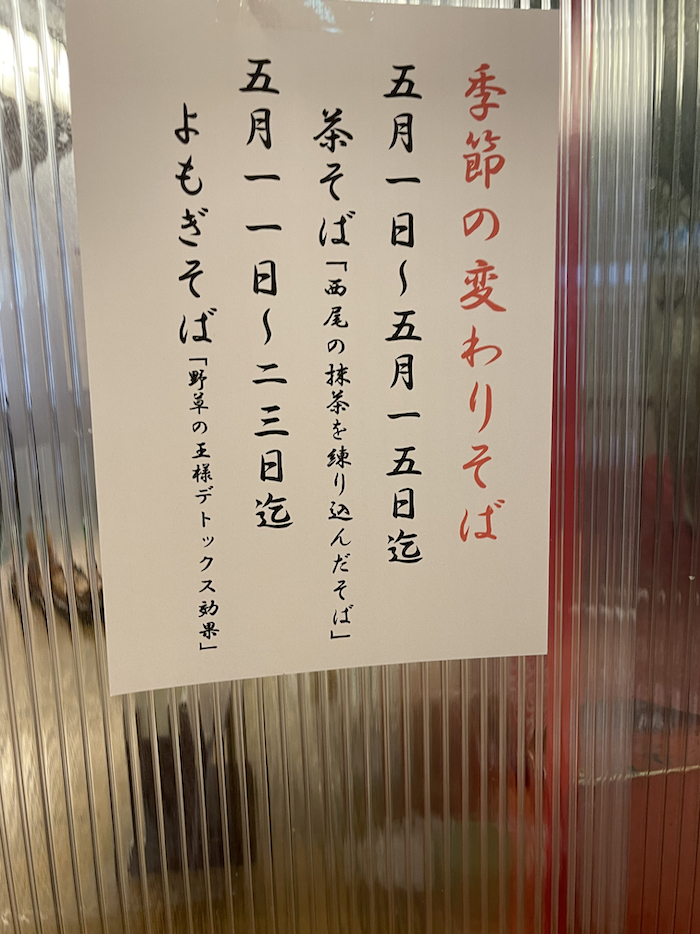 季節の変わりそば
五月一日～五月一五日迄
茶そば「西尾の抹茶を練り込んだそば」
五月一一日～二三日迄
よもぎそば「野草の王様デトックス効果」